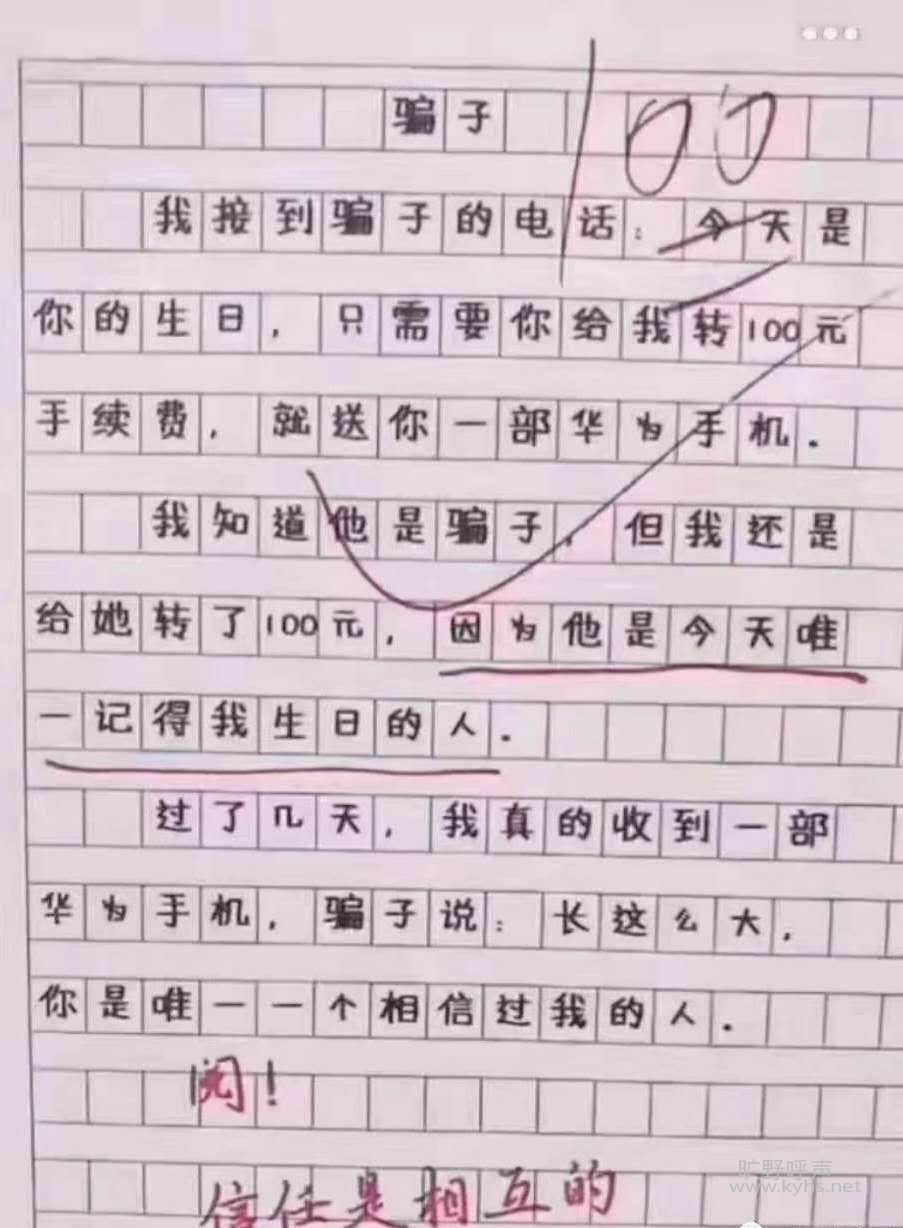 骗子
100
我接到骗子的电话：今天是
你的生日，只需要你给我转100元
手续费，就送你一部华为手机.
我知道他是骗子，但我还是
给她转了100元，因为他是今天唯
一记得我生日的人.
过了几天，我真的收到一部
华为手机，骗子说：长这么大，
你是唯一一个相信过我的人.
阅！
信任是相互的
旷野呼声
www.kyhs.net